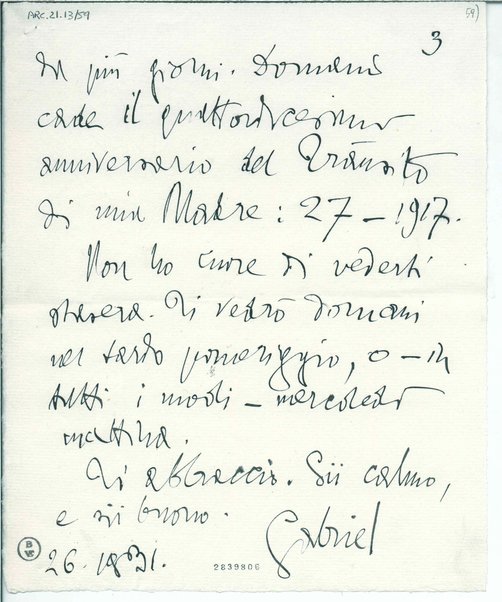 ARC.21.13/59
59)
3
da più giorni. Domani
cade il quattordicesimo
anniversario del Trànsito
di mia Madre: 27 – 1917.
Non ho cuore di vederti
stasera. Ti vedrò domani
nel tardo pomeriggio, o – in
tutti i modi – mercoledì
mattina.
Ti abbraccio. Sii calmo,
e sii buono.
Gabriel
26. 1931.
2839806